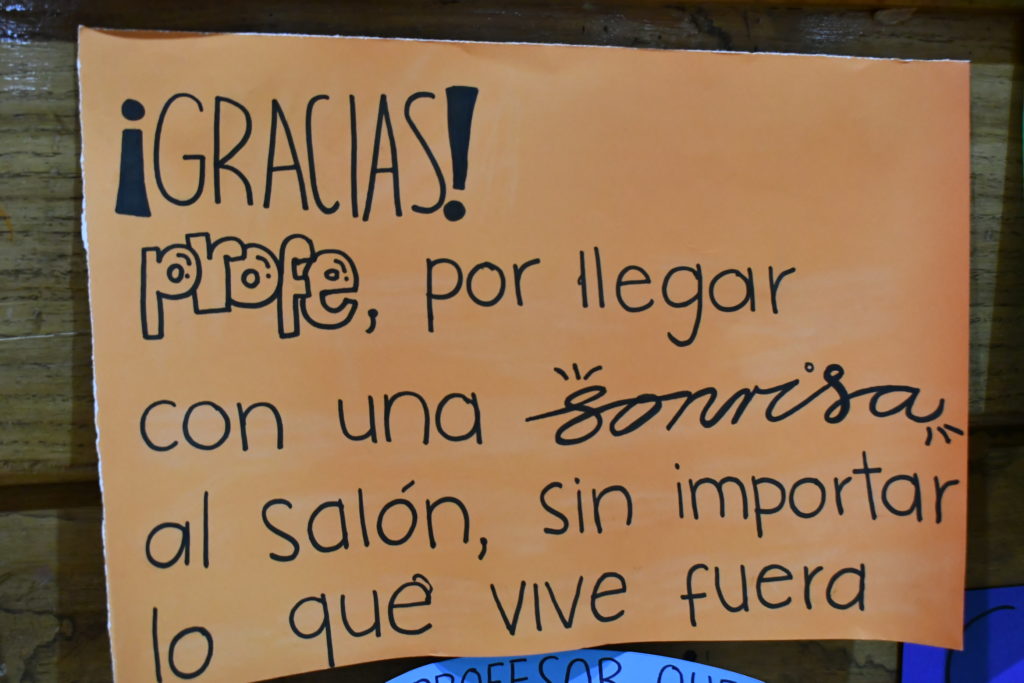 ¡GRACIAS!
profe, por llegar
con una sonrisa
al salón, sin importar
lo que vive fuera
PROFESOR QUE